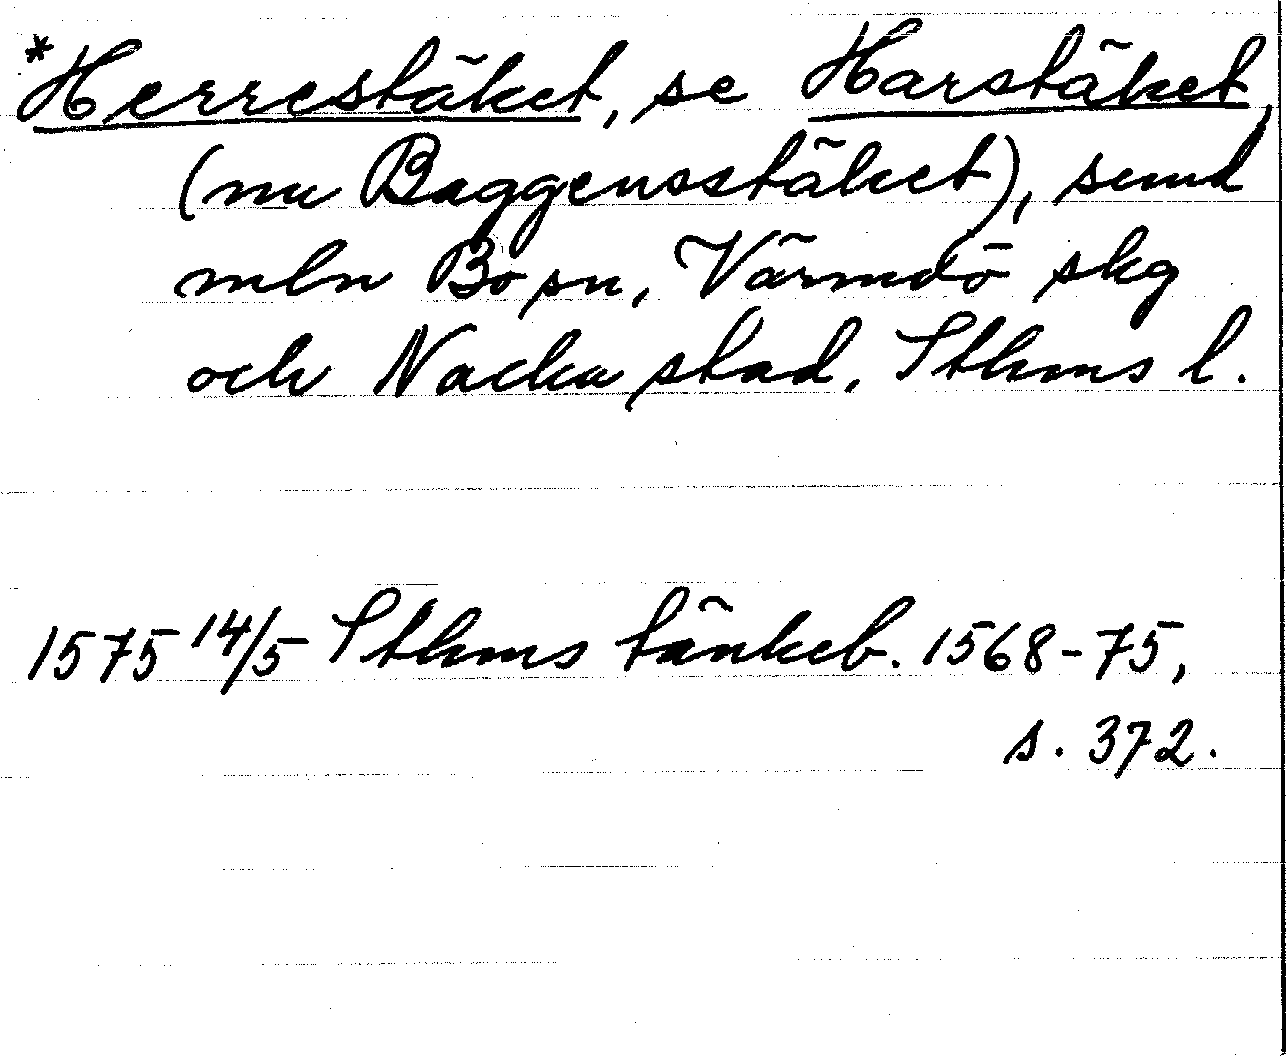 *Herrestäket, se Harstäket,
(nu Baggensstäket), sund
mln Bo sn, Värmdö skg
och Nacka stad, Sthms l.
1575 14/5 Sthms tänkeb. 1568-75,
s. 372.